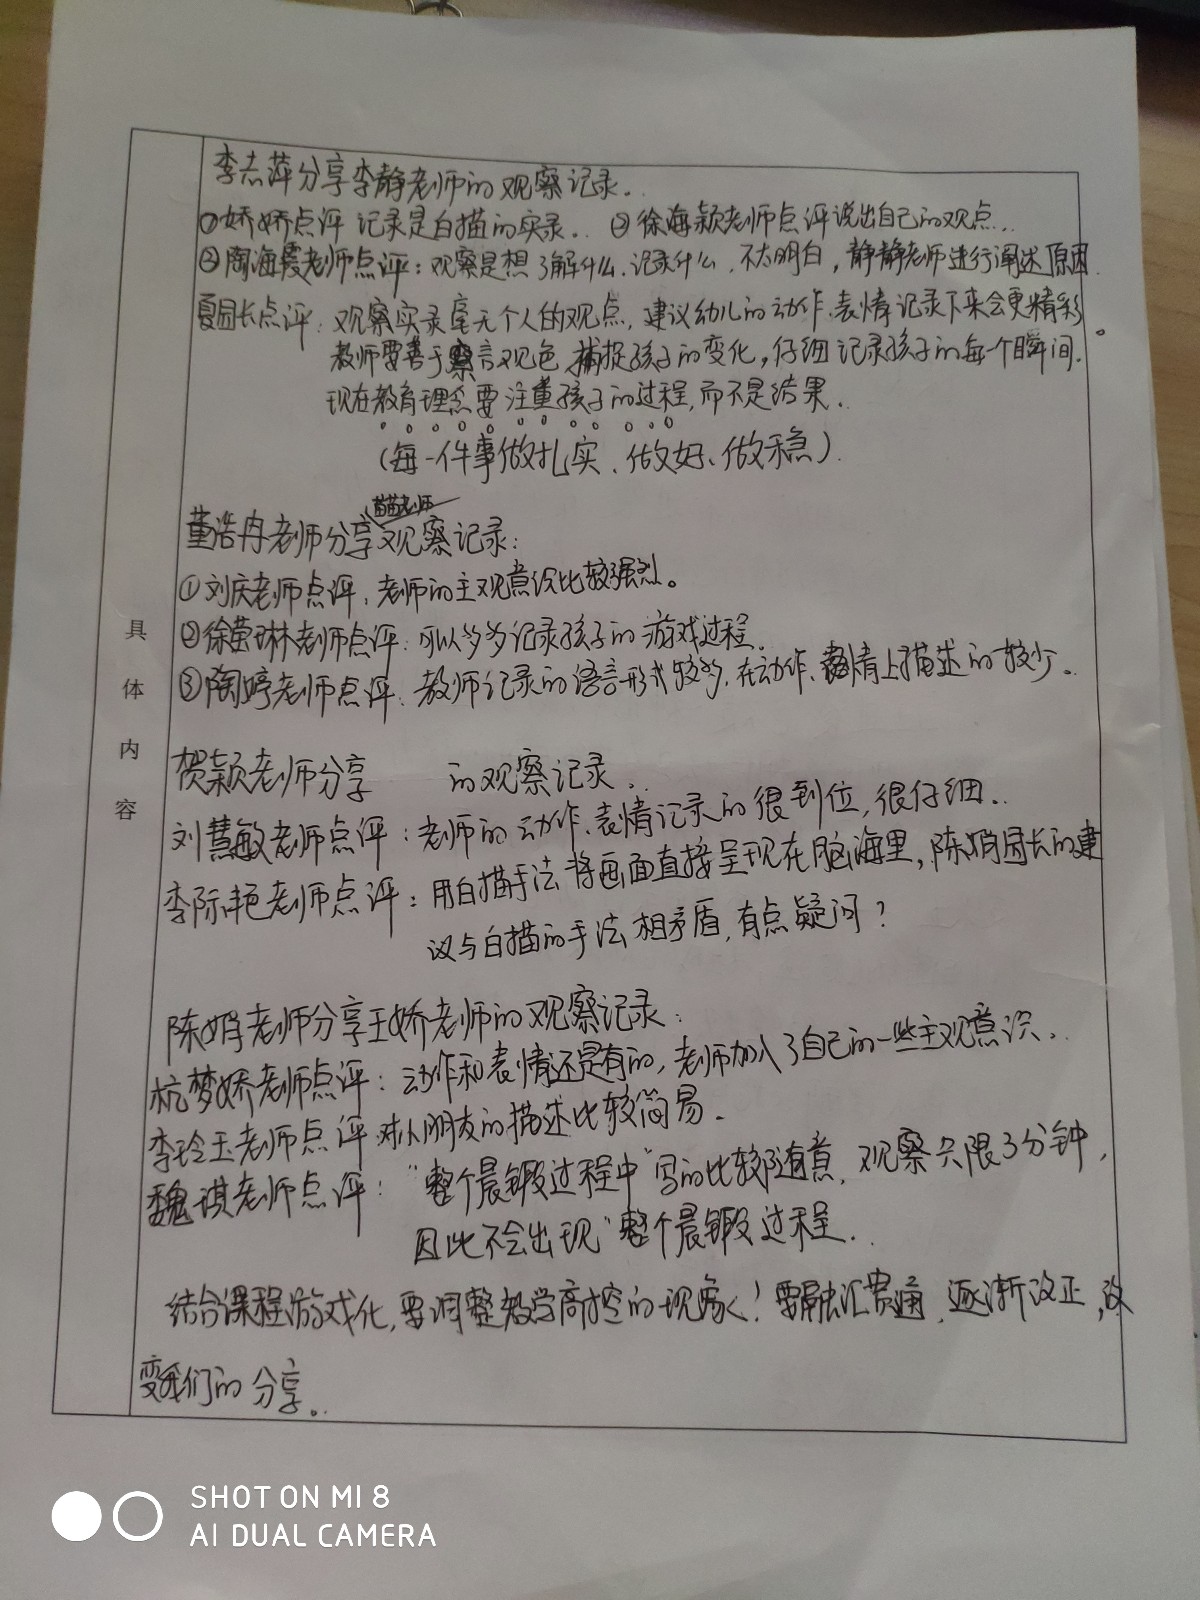 李志萍分享李静老师的观察记录.
①娇娇点评 记录是白描的实录.. ②徐海颖老师点评说出自己的观点..
③陶海霞老师点评：观察是想了解什么.记录什么，不太明白，静静老师进行阐述原因.
夏园长点评：观察实录毫无个人的观点，建议幼儿的动作、表情记录下来会更精彩。
教师要善于察言观色.捕捉孩子的变化，仔细记录孩子的每个瞬间.
现在教育理念要注重孩子的过程，而不是结果.
（每一件事做扎实、做好、做稳）.
苗苗老师
董浩冉老师分享观察记录：
①刘庆老师点评，老师的主观意识比较强烈。
②徐萤琳老师点评：可以多多记录孩子的游戏过程.
③陶婷老师点评：教师记录的语言形式较多，在动作、表情上描述的较少。
贺颖老师分享 的观察记录..
刘慧敏老师点评：老师的动作、表情记录的很到位，很仔细..
李际艳老师点评：用白描手法将画面直接呈现在脑海里，陈娟园长的建
议与白描的手法相矛盾，有点疑问？
陈娟老师分享王娇老师的观察记录：
杭梦娇老师点评：动作和表情还是有的，老师加入了自己的一些主观意识..
李玲玉老师点评：对小朋友的描述比较简易.
魏琪老师点评：“整个晨锻过程中”写的比较随意，观察只限3分钟，
因此不会出现“整个晨锻过程..
结合课程游戏化，要调整教学高控的现象！要融汇贯通，逐渐改正，改
变我们的分享。
具
体
内
容
SHOT ON MI 8
AI DUAL CAMERA